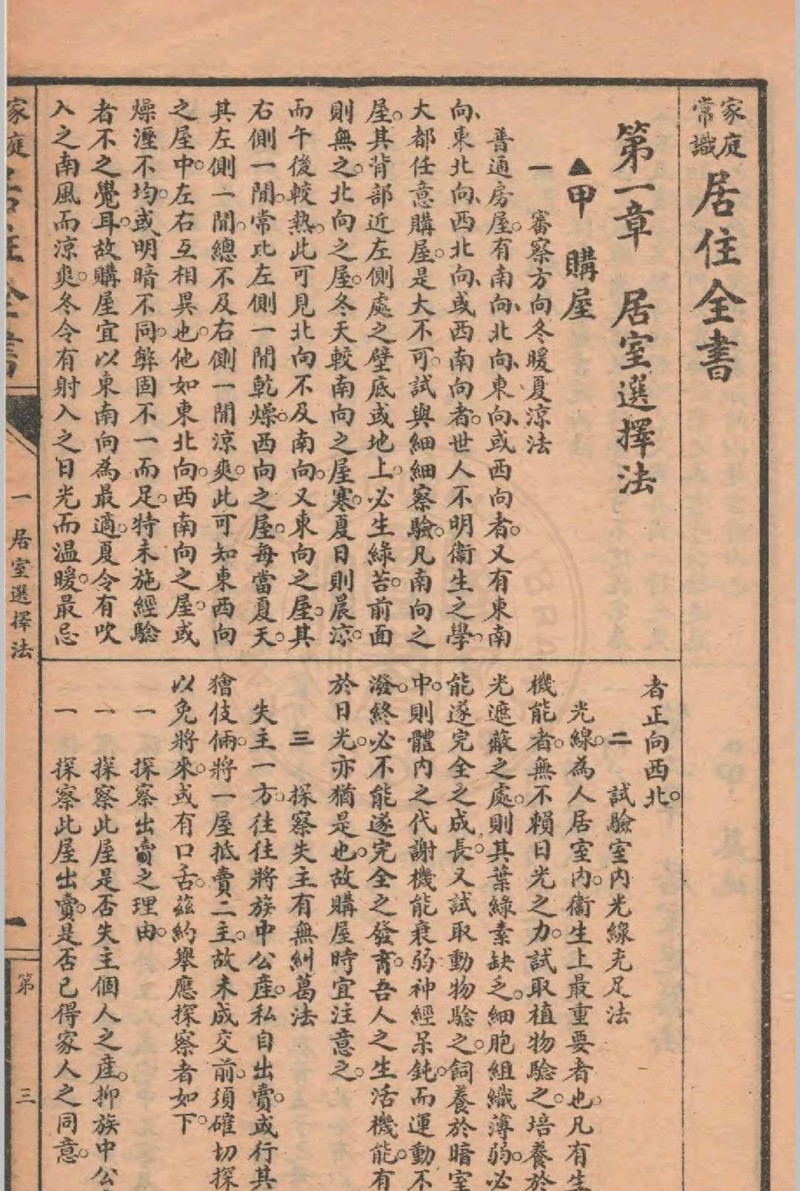 家庭常識 居住全書
第一章 居室選擇法
▲甲 購屋
一 審察方向冬暖夏涼法
普通房屋。有南向、北向、東向、或西向者。又有東南
向、東北向、西北向、或西南向者。世人不明衞生之學、
大都任意購屋。是大不可。試與細細察驗。凡南向之
屋。其背部近左側處之壁底或地上。必生綠苔。前面
則無之。北向之屋。冬天較南向之屋。寒。夏日則晨涼。
而午後較熱。此可見北向不及南向。又東向之屋。其
右側一間。常比左側一間乾燥。西向之屋。每當夏天。
其左側一間。總不及右側一間涼爽。此可知東西向
之屋中。左右互相異也。他如東北向。西南向之屋。或
燥溼不均。或明暗不同。弊固不一而足。特未施經驗
者不之覺耳。故購屋宜以東南向為最適。夏令有吹
入之南風而涼爽。冬令有射入之日光而温暖。最忌
者正向西北。
二 試驗室內光線充足法
光線。為人居室內。衞生上最重要者也。凡有生
機能者。無不賴日光之力。試取植物驗之。培養於
光遮蔽之處。則其葉綠素缺乏。細胞組織薄弱。必
能遂完全之成長。又試取動物驗之。飼養於暗室
中。則體內之代謝機能衰弱。神經呆鈍。而運動不
潑。終必不能遂完全之發育。吾人之生活機能。有
於日光。亦猶是也。故購屋時宜注意之。
三 探察失主有無糾葛法
失主一方。往往將族中公產。私自出賣。或行其
獪伎倆。將一屋抵賣二主。故未成交前。須確切探
以免將來。或有口舌。茲約舉應探察者如下。
一 探察出賣之理由。
一 探察此屋是否失主個人之產。抑族中公
一 探察此屋出賣。是否已得家人之同意。
家庭 居住全書
一 居室選擇法
一
第 三